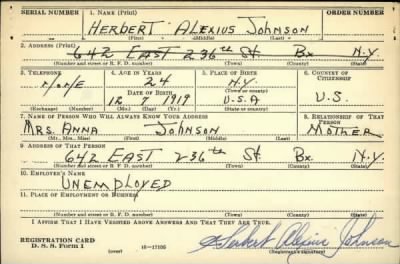 SERIAL NUMBER 1. NAME (Print) ORDER NUMBER
HERBERT ALEXIUS JOHNSON
(First) (Middle) (Last)
2. ADDRESS (Print)
642 EAST 236th St. Bx. N.Y.
(Number and street or R. F. D. number) (Town) (County) (State)
3. TELEPHONE 4. AGE IN YEARS 5. PLACE OF BIRTH 6. COUNTRY OF CITIZENSHIP
NONE 24 N.Y.
DATE OF BIRTH (Town or county)
12 7 1919 U.S.A U.S.
(Exchange) (Number) (Mo.) (Day) (Yr.) (State or country)
7. NAME OF PERSON WHO WILL ALWAYS KNOW YOUR ADDRESS 8. RELATIONSHIP OF THAT PERSON
MRS. ANNA JOHNSON MOTHER
(Mr., Mrs., Miss) (First) (Middle) (Last)
9. ADDRESS OF THAT PERSON
642 EAST 236th St. Bx. N.Y.
(Number and street or R. F. D. number) (Town) (County) (State)
10. EMPLOYER'S NAME
UNEMPLOYED
11. PLACE OF EMPLOYMENT OR BUSINESS
(Number and street or R. F. D. number) (Town) (County) (State)
I AFFIRM THAT I HAVE VERIFIED ABOVE ANSWERS AND THAT THEY ARE TRUE.
REGISTRATION CARD
D. S. S. FORM 1 (over) 16-17105 Herbert Alexius Johnson
(Registrant's signature)